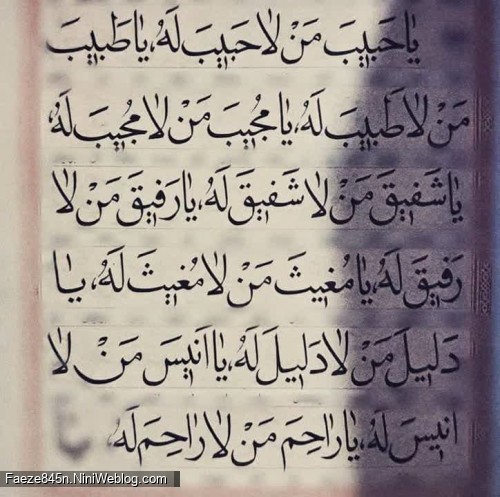 یٰا حَبیٖبَ مَنْ لاٰ حَبیٖبَ لَهُ، یٰا طَبیٖبَ
مَنْ لاٰ طَبیٖبَ لَهُ، یٰا مُجیٖبَ مَنْ لاٰ مُجیٖبَ لَهُ
یٰا شَفیٖقَ مَنْ لاٰ شَفیٖقَ لَهُ، یٰا رَفیٖقَ مَنْ لاٰ
رَفیٖقَ لَهُ، یٰا مُغیٖثَ مَنْ لاٰ مُغیٖثَ لَهُ، یٰا
دَلیٖلَ مَنْ لاٰ دَلیٖلَ لَهُ، یٰا اَنیٖسَ مَنْ لاٰ
انیٖسَ لَهُ، یٰا رٰاحِمَ مَنْ لاٰ رٰاحِمَ لَهُ
Faeze845n.NiniWeblog.com